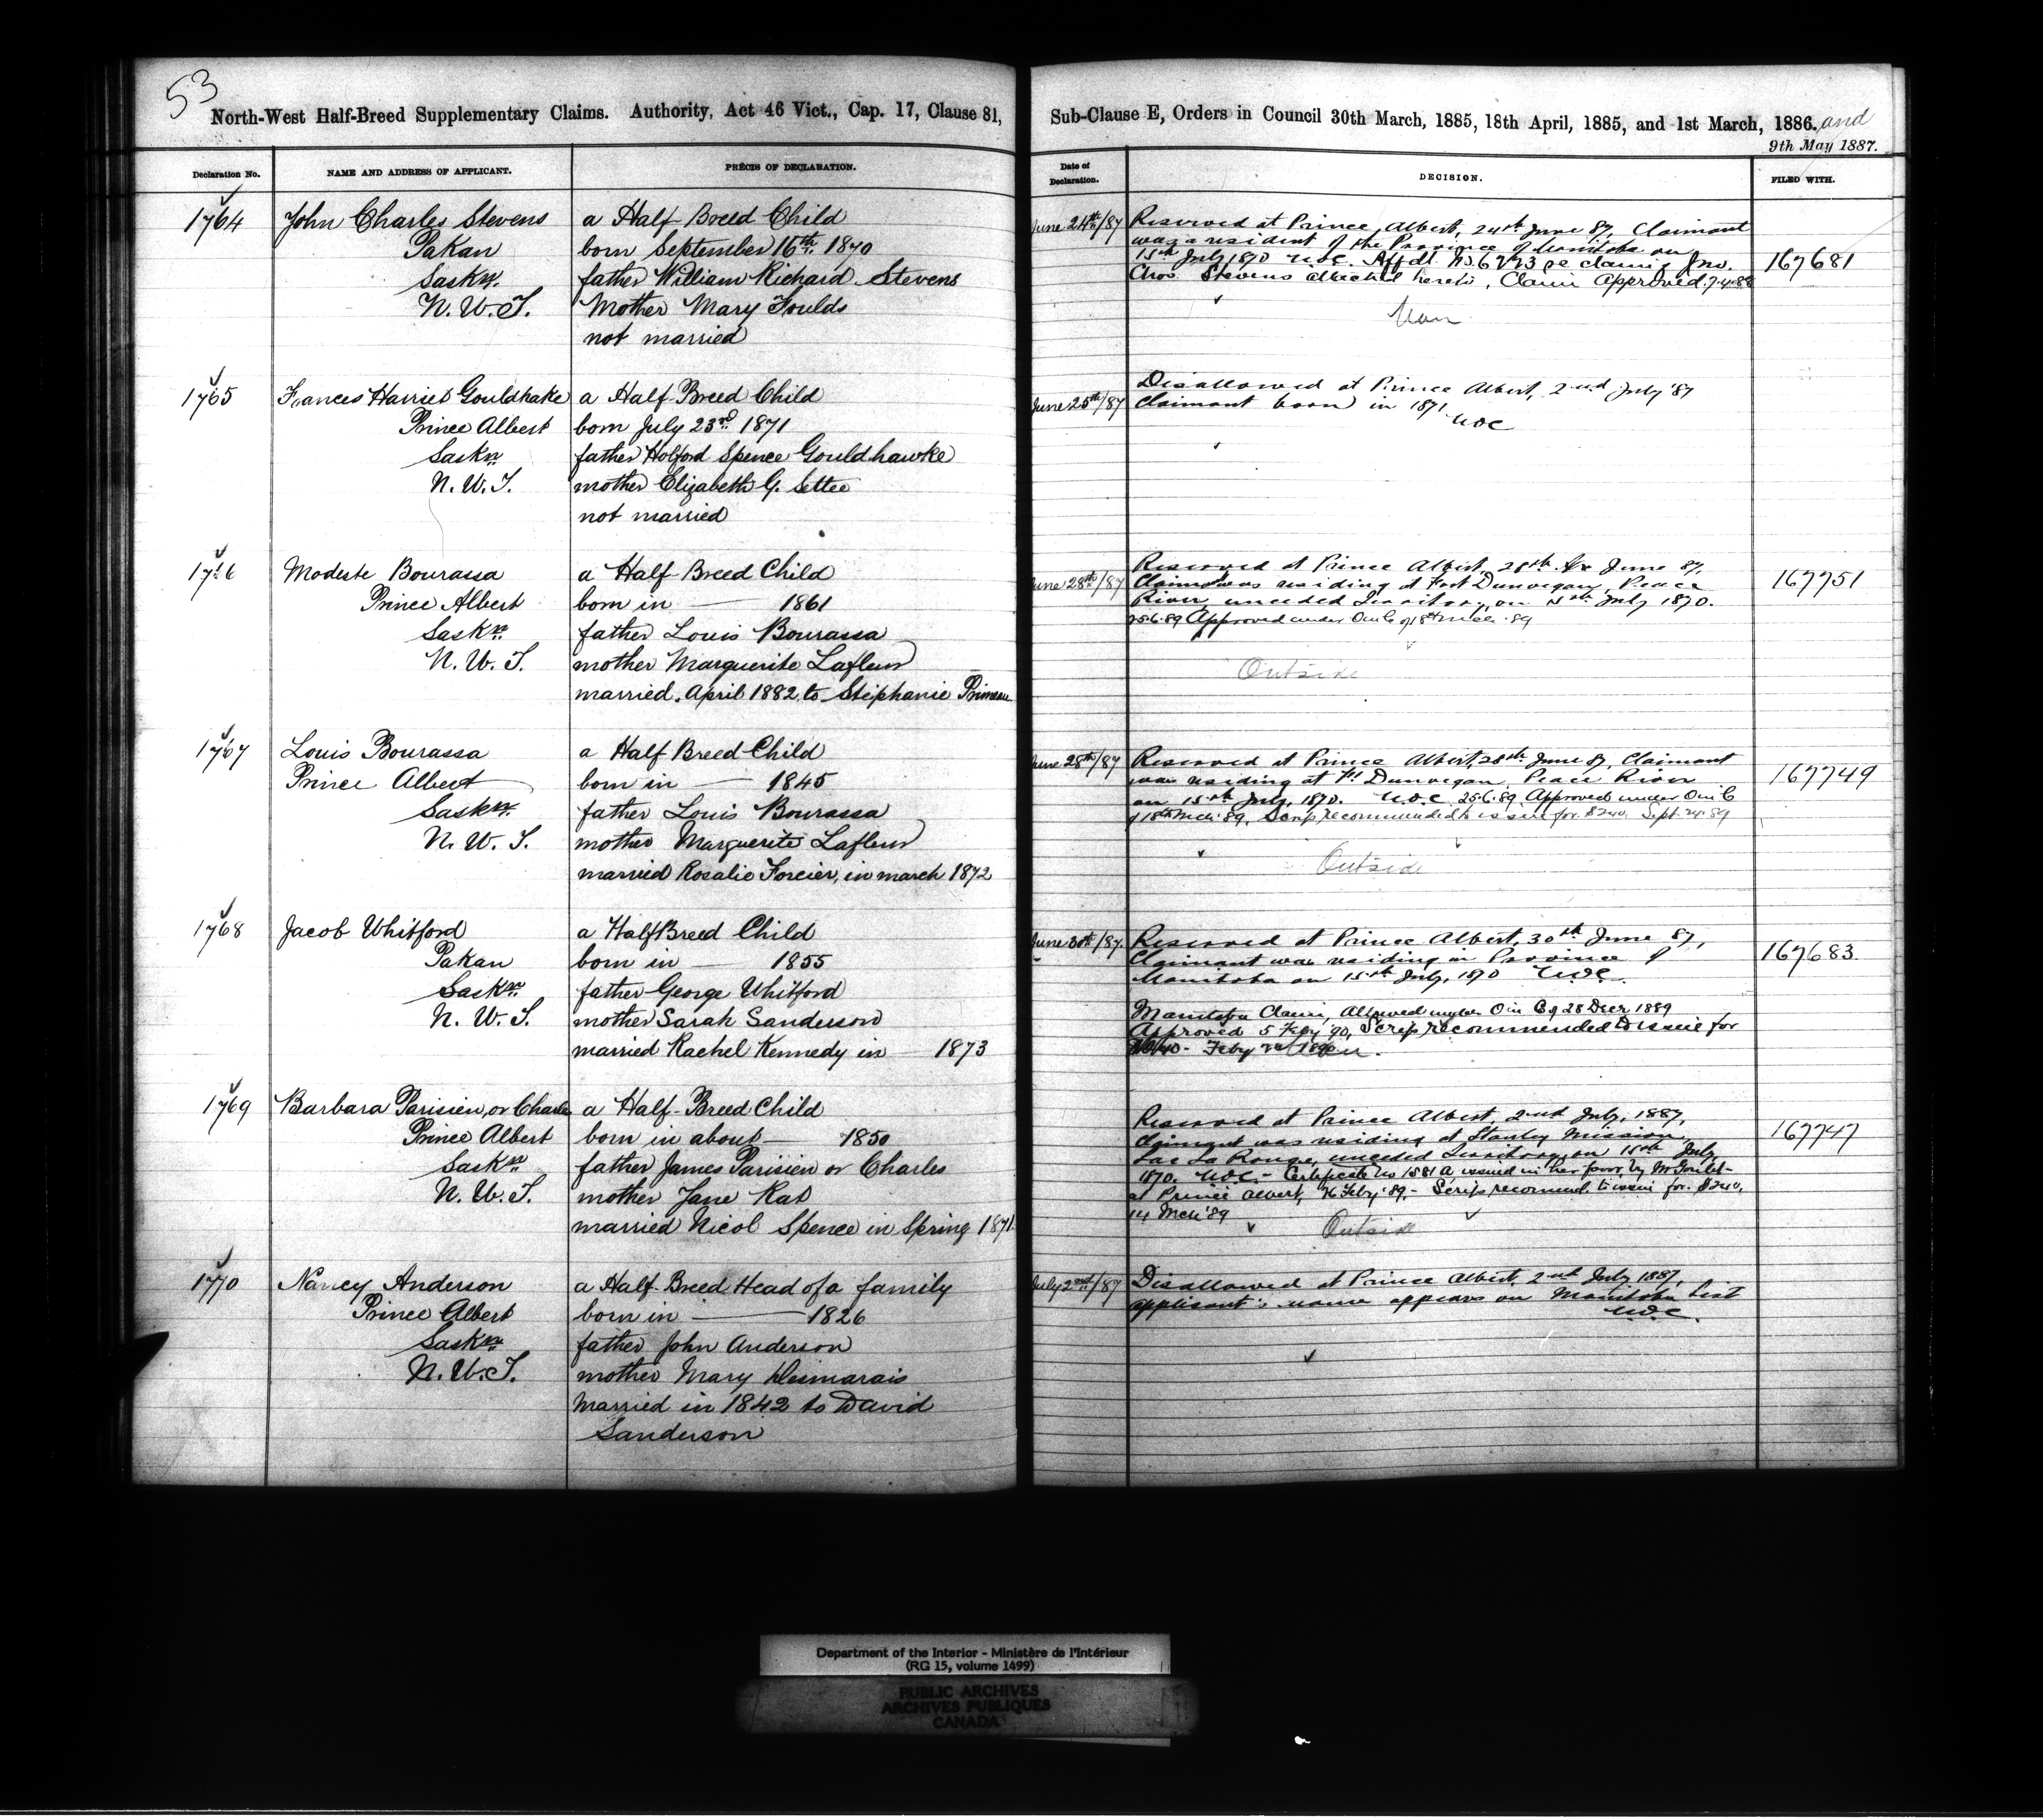 53
North-West Half-Breed Supplementary Claims. Authority, Act 46 Vict., Cap. 17, Clause 81,
Sub-Clause E, Orders in Council 30th March, 1885, 18th April, 1885, and 1st March, 1886. and
9th May 1887.
Declaration No.
NAME AND ADDRESS OF APPLICANT.
PRÉCIS OF DECLARATION.
Date of
Declaration.
DECISION.
FILED WITH.
1764
John Charles Stevens
Pakan
Saskn.
N. W. T.
a Half Breed Child
born September 16th 1870
father William Richard Stevens
Mother Mary Foulds
not married
June 24th/87
Reserved at Prince Albert, 24th June 87, Claimant
was a resident of the Province of Manitoba on
15th July 1870 Affdt. re claim Jno.
Chas Stevens attached hereto, Claim Approved 7.4.88
Man
167681
1765
Frances Harriet Gouldhake
Prince Albert
Saskn
N. W. T.
a Half Breed Child
born July 23rd 1871
father Holford Spence Gouldhawke
mother Elizabeth G. Settee
not married
June 25th/87
Disallowed at Prince Albert, 2nd July '87
Claimant born in 1871
1766
Modeste Bourassa
Prince Albert
Saskn.
N. W. T.
a Half Breed Child
born in — 1861
father Louis Bourassa
mother Marguerite Lafleur
married. April 1882 to Stephanie Primeau
June 28th/87
Reserved at Prince Albert, 28th June 87,
Claimant was residing at Fort Dunvegan, Peace
River unceded Territory, on 15th July 1870.
25.6.89 Approved under O in C of 18th Mch. 89
Outside
167751
1767
Louis Bourassa
Prince Albert
Saskn.
N. W. T.
a Half Breed Child
born in — 1845
father Louis Bourassa
mother Marguerite Lafleur
married Rosalie Forcier, in march 1872
June 28th/87
Reserved at Prince Albert, 28th June 87, Claimant
was residing at Ft Dunvegan, Peace River
on 15th July, 1870. 25.6.89 Approved under O in C
of 18th Mch. 89, Scrip recommended to issue for $240. Sept. 24. 89
Outside
167749
1768
Jacob Whitford
Pakan
Saskn.
N. W. T.
a Half Breed Child
born in — 1855
father George Whitford
mother Sarah Sanderson
married Rachel Kennedy in — 1873
June 30th/87.
Reserved at Prince Albert, 30th June 87,
Claimant was residing in Province of
Manitoba on 15th July, 1870
Manitoba Claim, Allowed under O in C of 28 Decr 1889
Approved 5 Feby '90, Scrip recommended to issue for
Feby 1890
167683
1769
Barbara Parisien, or Charles
Prince Albert
Saskn
N. W. T.
a Half-Breed Child
born in about — 1850
father James Parisien or Charles
mother Jane Kat
married Nicol Spence in Spring 1871.
Reserved at Prince Albert, 2nd July, 1887,
Claimant was residing at Stanley Mission,
Lac La Ronge, unceded Territory, on 15th July,
1870. - Certificate No 1581 A issued in her favor by Mr Goulet -
at Prince Albert, Feby '89. - Scrip recommd. to issue for $240.
14 Mch '89
Outside
167747
1770
Nancy Anderson
Prince Albert
Saskn
N. W. T.
a Half-Breed Head of a family
born in — 1826
father John Anderson
mother Mary Desmarais
Married in 1842 to David
Sanderson
July 2nd/87
Disallowed at Prince Albert, 2nd July 1887,
applicant's name appears on Manitoba List
Department of the Interior - Ministère de l'Intérieur
(RG 15, volume 1499)
PUBLIC ARCHIVES
ARCHIVES PUBLIQUES
CANADA